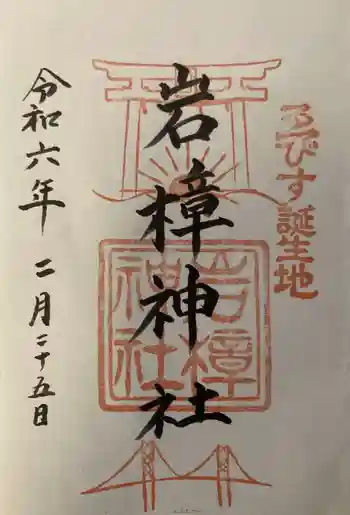 ゑびす誕生地
岩樟神社
岩樟
神社
令和六年 二月二十五日